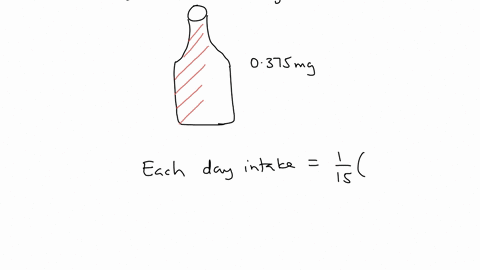 0.375mg
Each day intake = 1/15 (